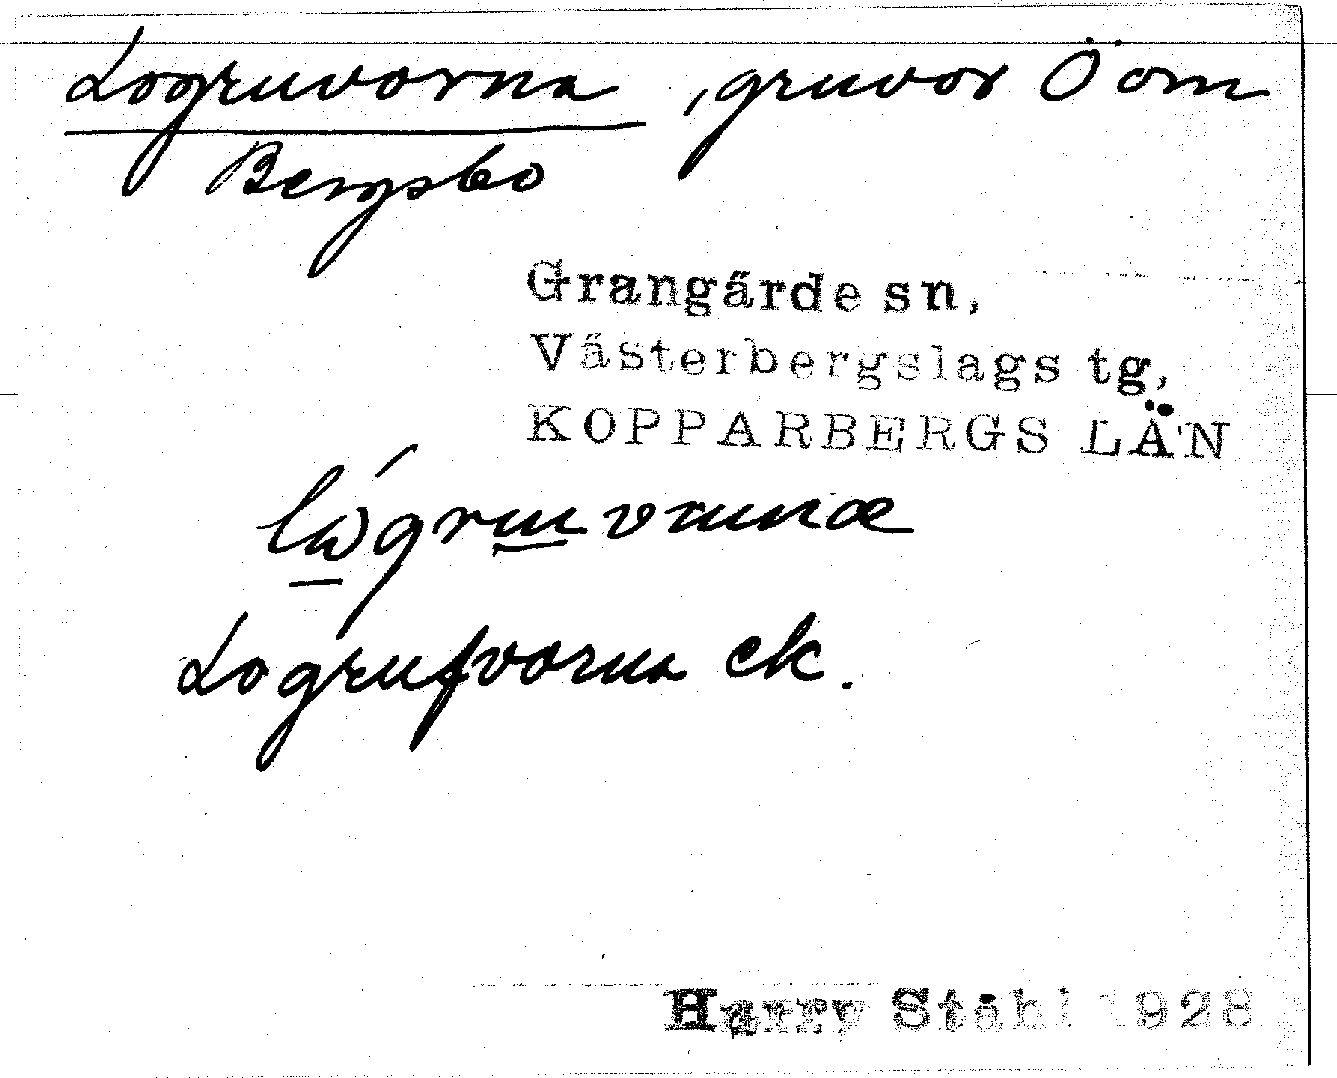 Logruvorna, gruvor Ö om
Bergsbo
Grangärde sn,
Västerbergslags tg,
KOPPARBERGS LÄN
Logrufvorna ek.
Harry Ståhl 1928